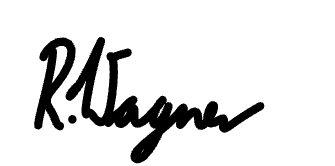 R. Wagner